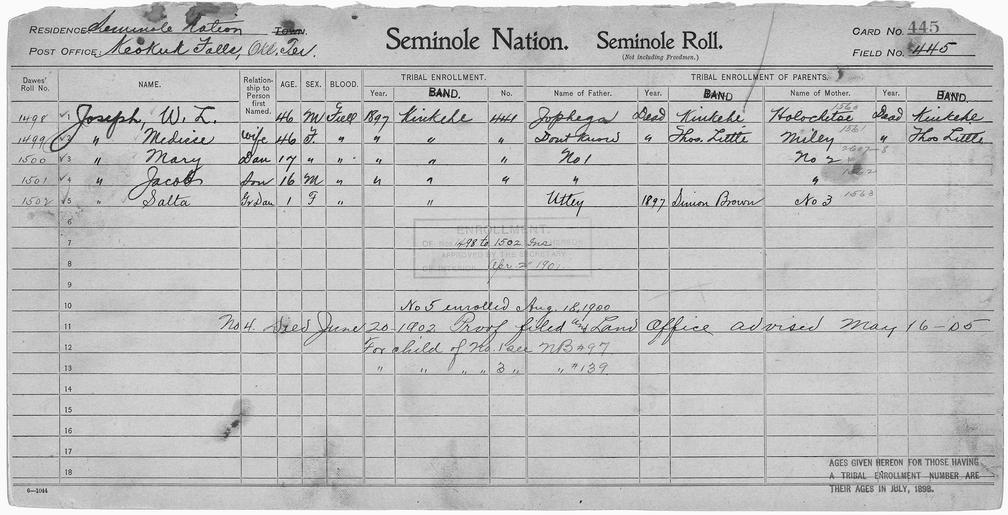 RESIDENCE: Seminole Nation TOWN. Seminole Nation. Seminole Roll. CARD NO. 445
POST OFFICE: Keokuk Falls, Okl. Ter. (Not including Freedmen.) FIELD NO. 445
Dawes' Roll No. NAME. Relationship to Person first Named. AGE. SEX. BLOOD. TRIBAL ENROLLMENT. TRIBAL ENROLLMENT OF PARENTS.
Year. BAND. No. Name of Father. Year. BAND Name of Mother. Year. BAND.
1498 √1 Joseph, W. L. 46 M Full 1897 Kinkehe 441 Jophega Dead Kinkehe Holochetae 1560 Dead Kinkehe
1499 √2 " Medicie Wife 46 F. " " " " Dont know " Thos. Little Miley 1561 " Thos Little
1500 √3 " Mary Dau 17 " " " " " No 1 No 2
1501 √4 " Jacob Son 16 M " " " " " " 1562
1502 √5 " Salta Gr Dau 1 F " " Utley 1897 Simon Brown No 3 1563
6
ENROLLMENT.
7 OF NOS. 1498 to 1502 Ins HEREON
APPROVED BY THE SECRETARY
8 OF INTERIOR Apr. 2 1901.
9
10 No 5 enrolled Aug. 18, 1900
11 No. 4. died June 20-1902 Proof filed and Land Office advised May 16-05
12 For child of No. 1 see NB #97
13 " " " " 3 " " " 139.
14
15
16
17
18
AGES GIVEN HEREON FOR THOSE HAVING
A TRIBAL ENROLLMENT NUMBER ARE
THEIR AGES IN JULY, 1898.
6-1044